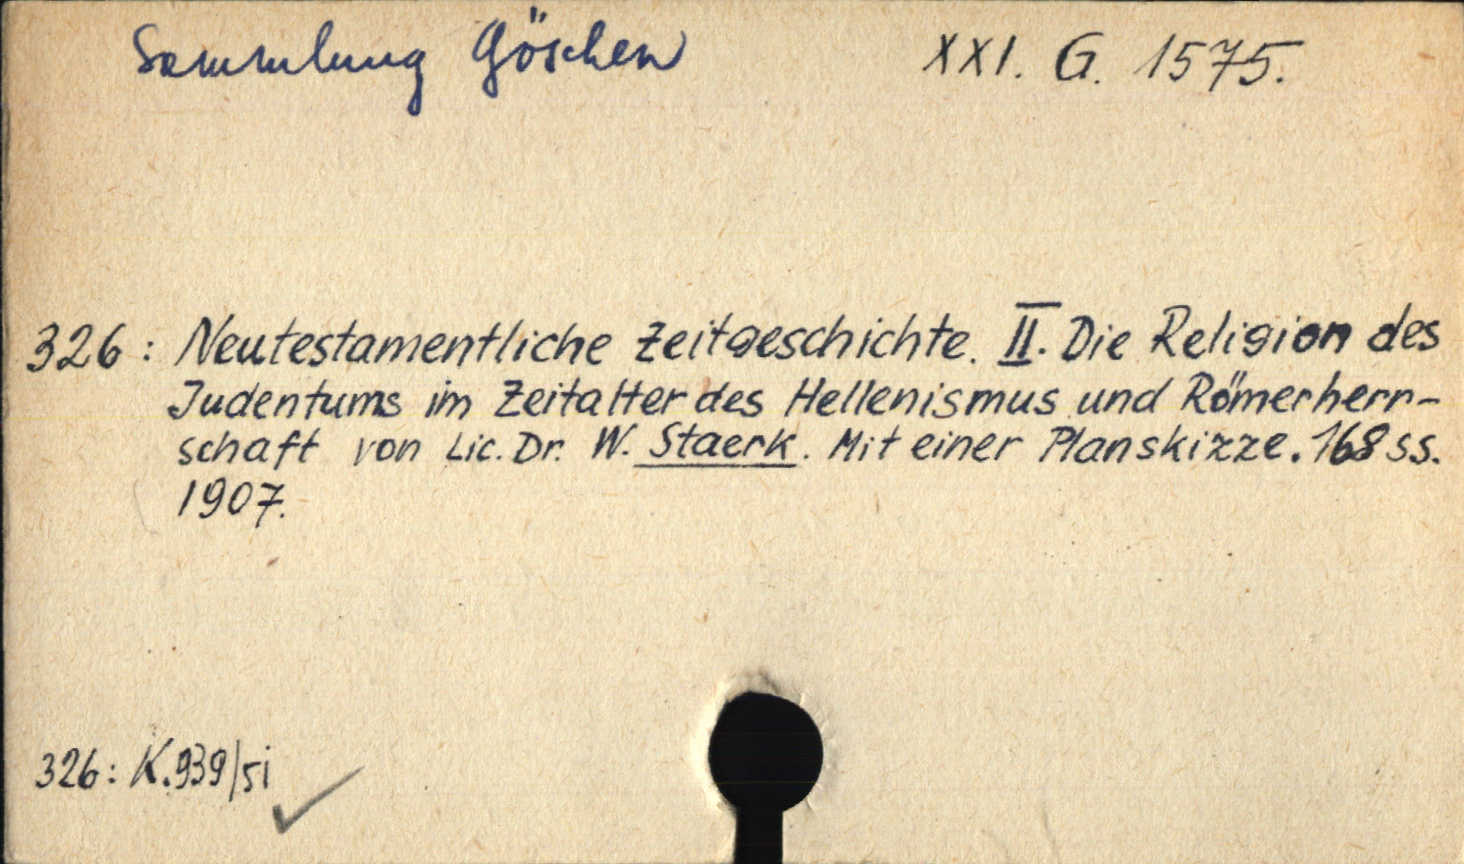 Sammlung Göschen XXI. G. 1575.
326: Neutestamentliche Zeitgeschichte. II. Die Religion des
Judentums im Zeitalter des Hellenismus und Römerherr-
schaft von Lic. Dr. W. Staerk. Mit einer Planskizze. 168 ss.
1907.
326: K.939/5i